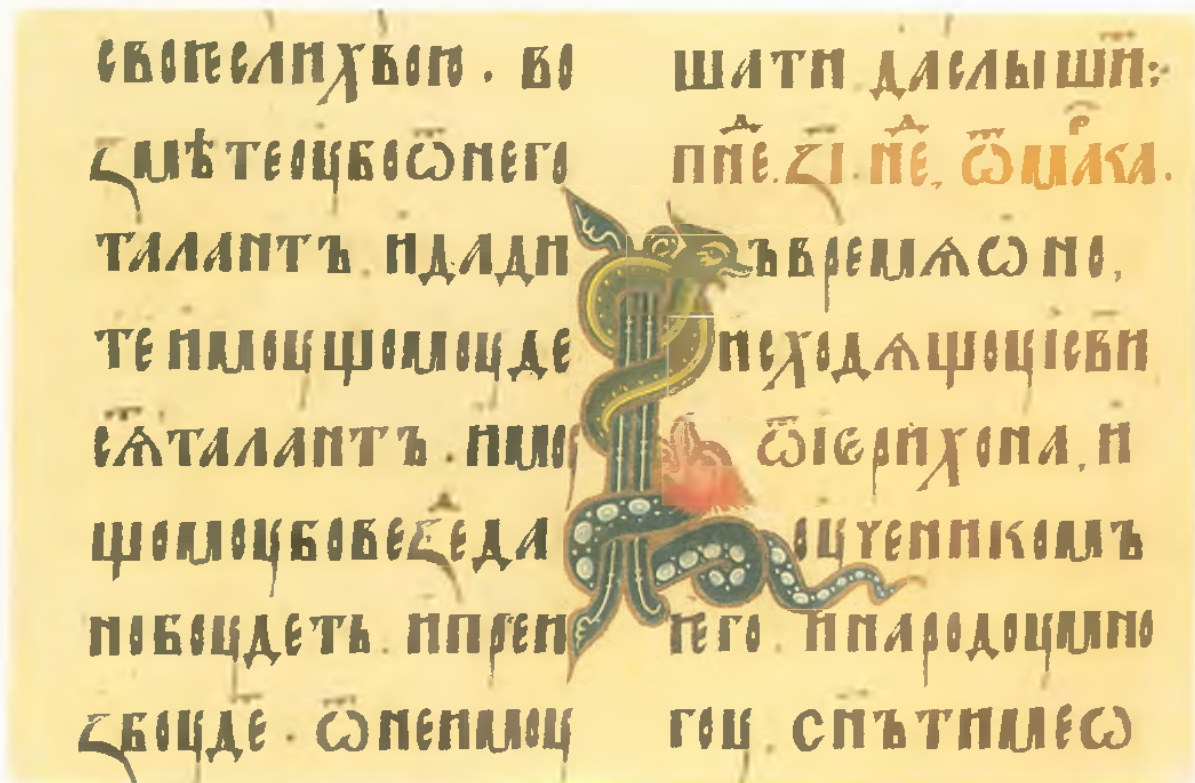 своѥслихвою . во
ꙁмѣтеоубоѿнего
талантъ . идади
теимоущомоуде
сѧ҃талантъ . имоу
щомоубовеꙁⷣеда
нобоудеть . ипреи
ꙁбоуде҃ . ѿнеимоу
шати даслыши҃:
пⷩ҇е . ꙁ҃і . неⷣ , ѿмаⷬка .
ъвремѧѡно ,
исходѧщоуісви
ѿіерихона , и
оученикомъ
ѥго . инародоумно
гоу . сн҃ътимеѡ